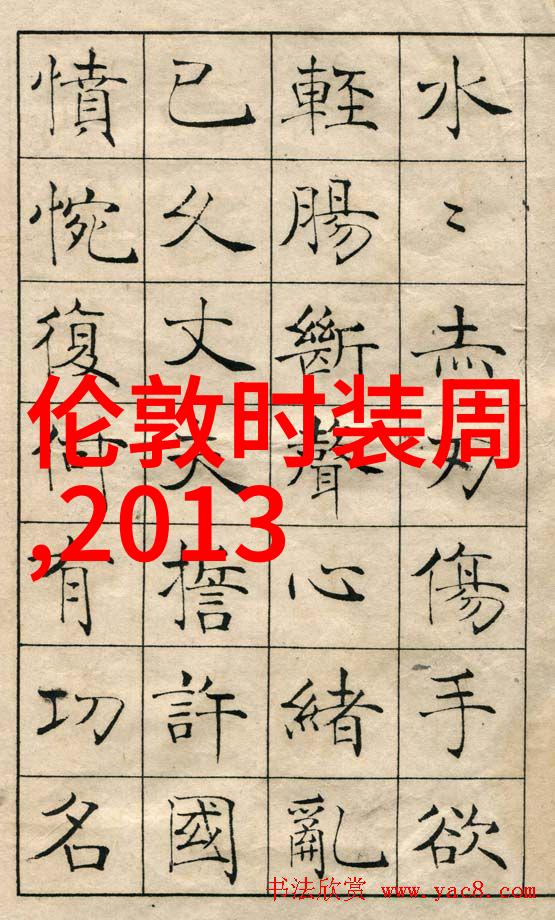 水〻赤刃傷手欲
輕腸斷聲心緒亂
已久丈夫誓許國
憤惋復何有功名
伦敦时装周
,2013
书法欣赏 www.yac8.com